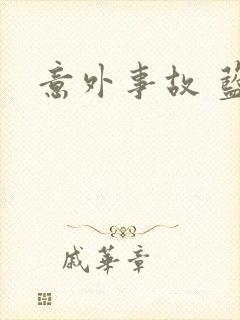 意外事故
戚華章